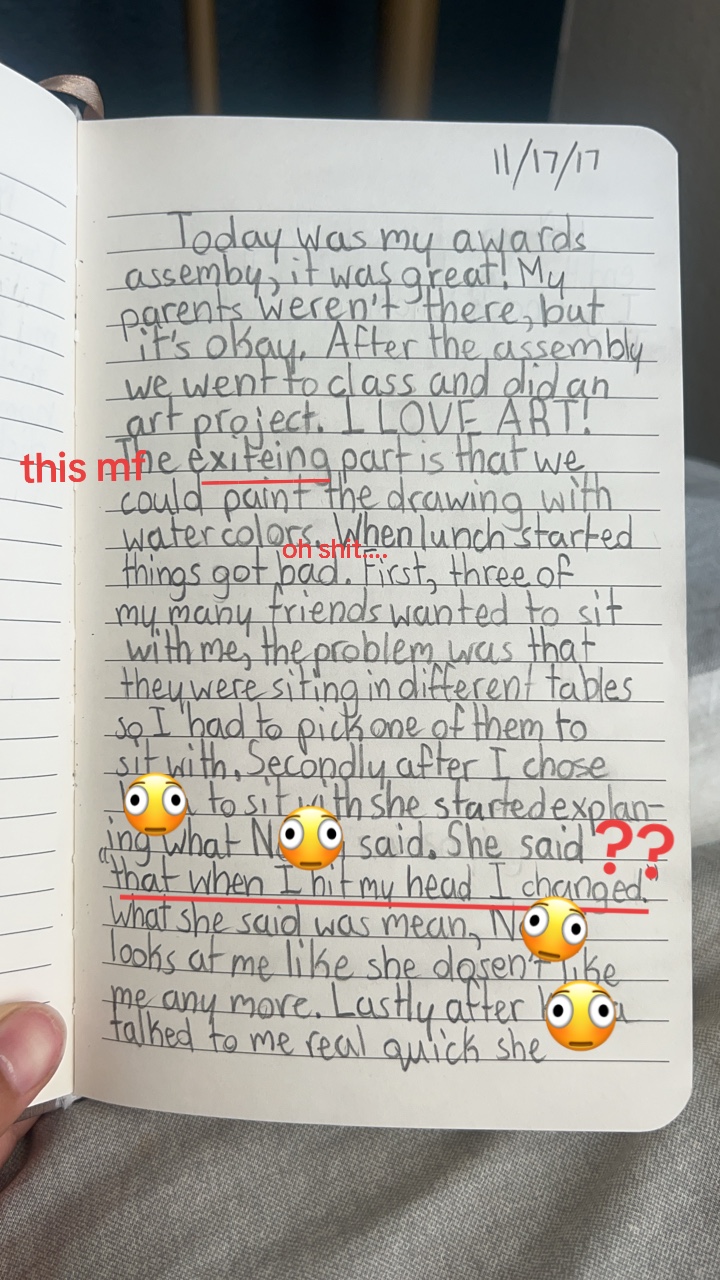 11/17/17
Today was my awards
assemby, it was great! My
parents weren't there, but
it's okay. After the assembly
we went to class and did an
art project. I LOVE ART!
this mf
The exifeing part is that we
could paint the drawing with
water colors. When lunch started
oh shit....
things got bad. First, three of
my many friends wanted to sit
with me, the problem was that
they were siting in different tables
so I had to pick one of them to
sit with. Secondly after I chose
to sit with she started explan-
ing what N said. She said ??
"that when I hit my head I changed."
What she said was mean, N
looks at me like she dosen't like
me any more. Lastly after
talked to me real quick she